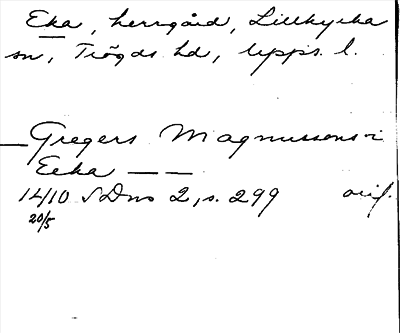 Eka, herrgård, Lillkyrka
sn, Trögds hd, Upps. l.
— Gregers Magnussons i
Eeka — —
1410 SDns 2, s. 299 orig.
20/5